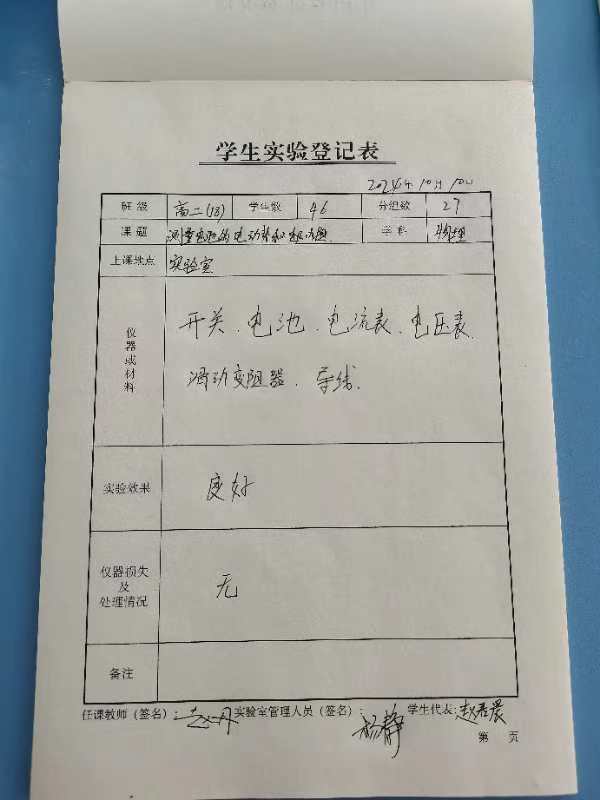 学生实验登记表
2024年10月10日
班级 高二(18) 学生数 46 分组数 27
课题 测量电池的电动势和内阻 学科 物理
上课地点 实验室
仪器或材料 开关、电池、电流表、电压表、
滑动变阻器、导线
实验效果 良好
仪器损失
及
处理情况 无
备注
任课教师（签名）： 实验室管理人员（签名）：杨静 学生代表：赵君晨
第 页